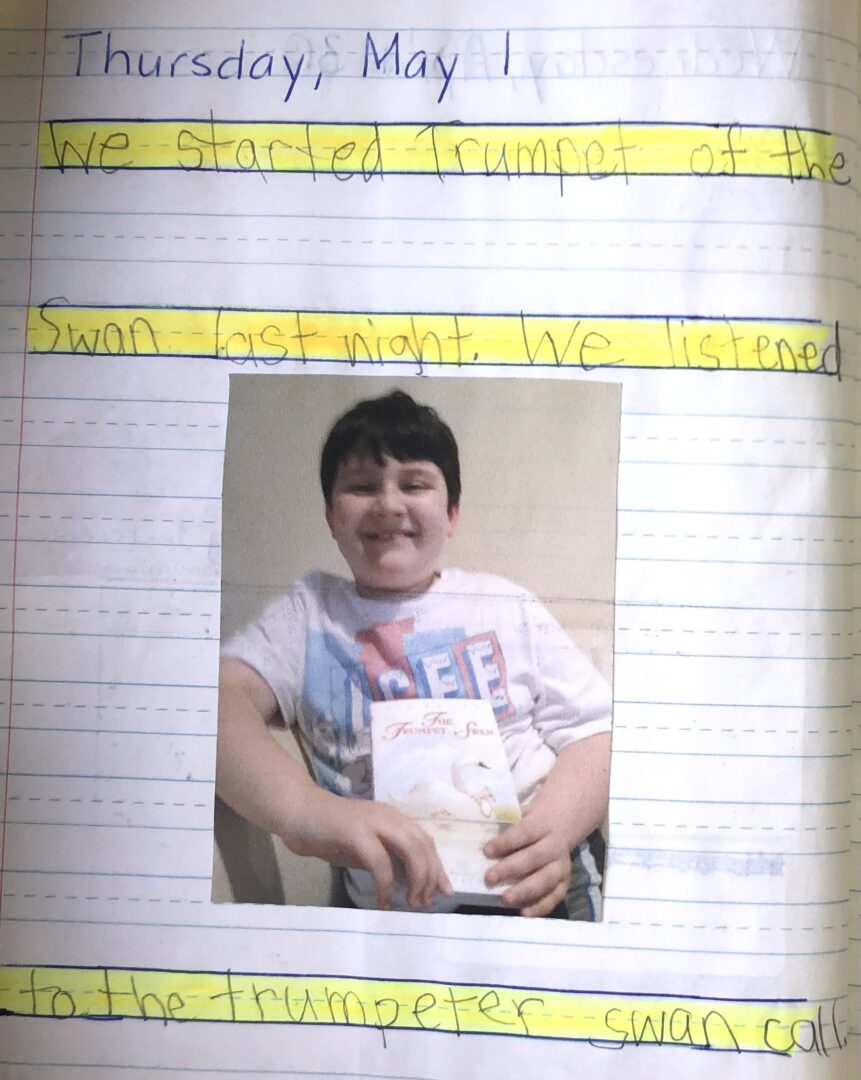 Thursday, May 1
We started Trumpet of the
Swan last night. We listened
THE
TRUMPET SWAN
to the trumpeter swan call.